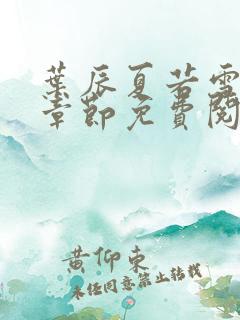 葉辰夏若雪
章節免費閱
黄仰東
未经同意禁止转载